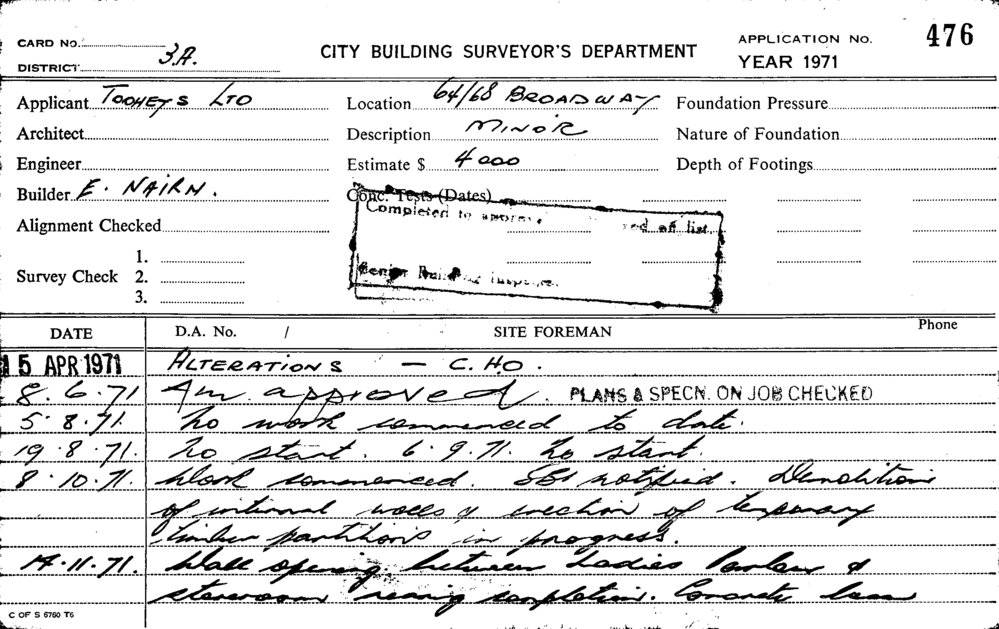 CARD No.
DISTRICT 3A.
CITY BUILDING SURVEYOR'S DEPARTMENT
APPLICATION No. 476
YEAR 1971
Applicant TOOHEYS LTD
Location 64/68 BROADWAY
Foundation Pressure
Architect
Description MINOR
Nature of Foundation
Engineer
Estimate $ 4000
Depth of Footings
Builder E. NAIRN.
Conc. Tests (Dates)
Completed to off list.
Alignment Checked
Senior Building Inspector.
Survey Check 1.
2.
3.
DATE D.A. No. / SITE FOREMAN Phone
15 APR 1971 ALTERATIONS — C.H.O.
8.6.71 approved. PLANS & SPECN. ON JOB CHECKED
5.8.71. No work commenced to date.
19.8.71. No start. 6.9.71. No start.
8.10.71. Work commenced. SBI notified. Demolition
of internal walls & erection of temporary
timber partitions in progress.
17.11.71. Wall opening between Ladies Parlour &
storeroom nearing completion. Concrete
C OF S 6760 T6